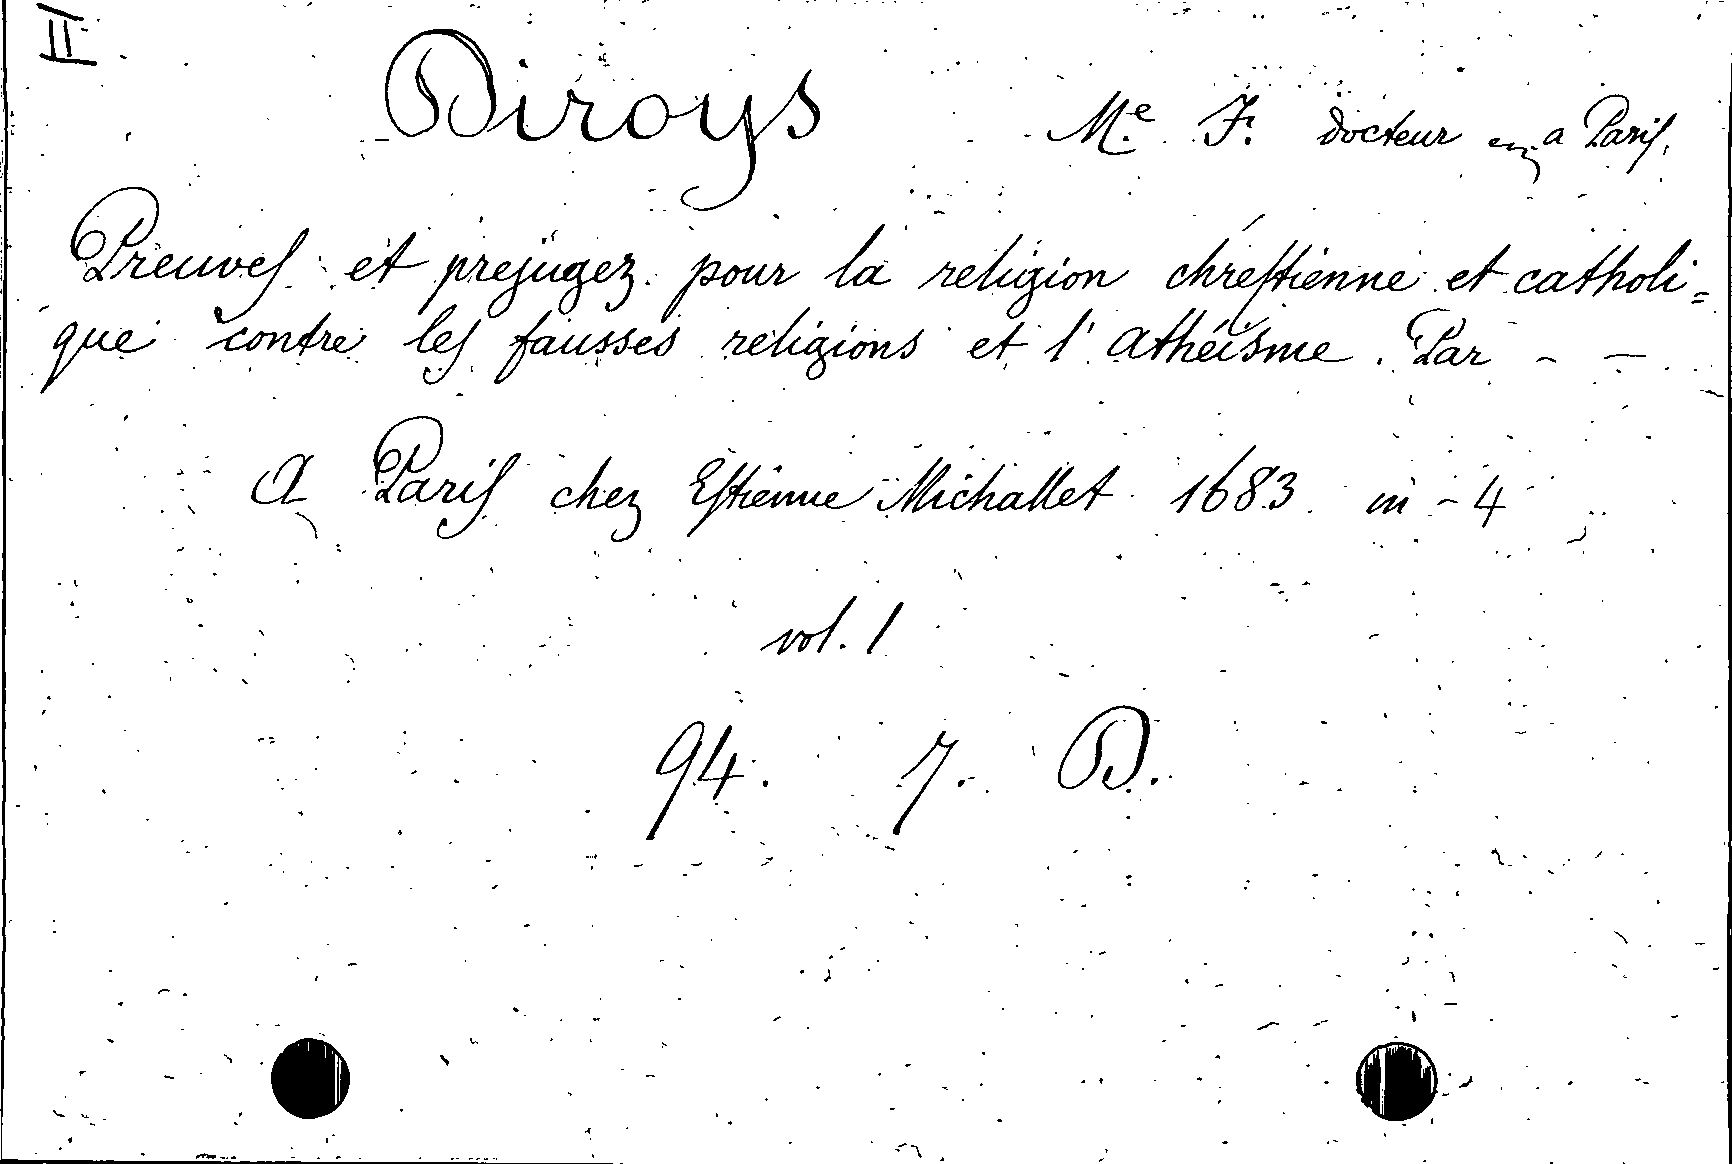 II
Diroys Me. F. docteur a Paris.
Preuves et prejugez pour la religion chrestienne et catholi=
que contre les fausses religions et l'athéisme. Par - -
A Paris chez Estienne Michallet 1683 in-4
vol. 1
94. 7. D.